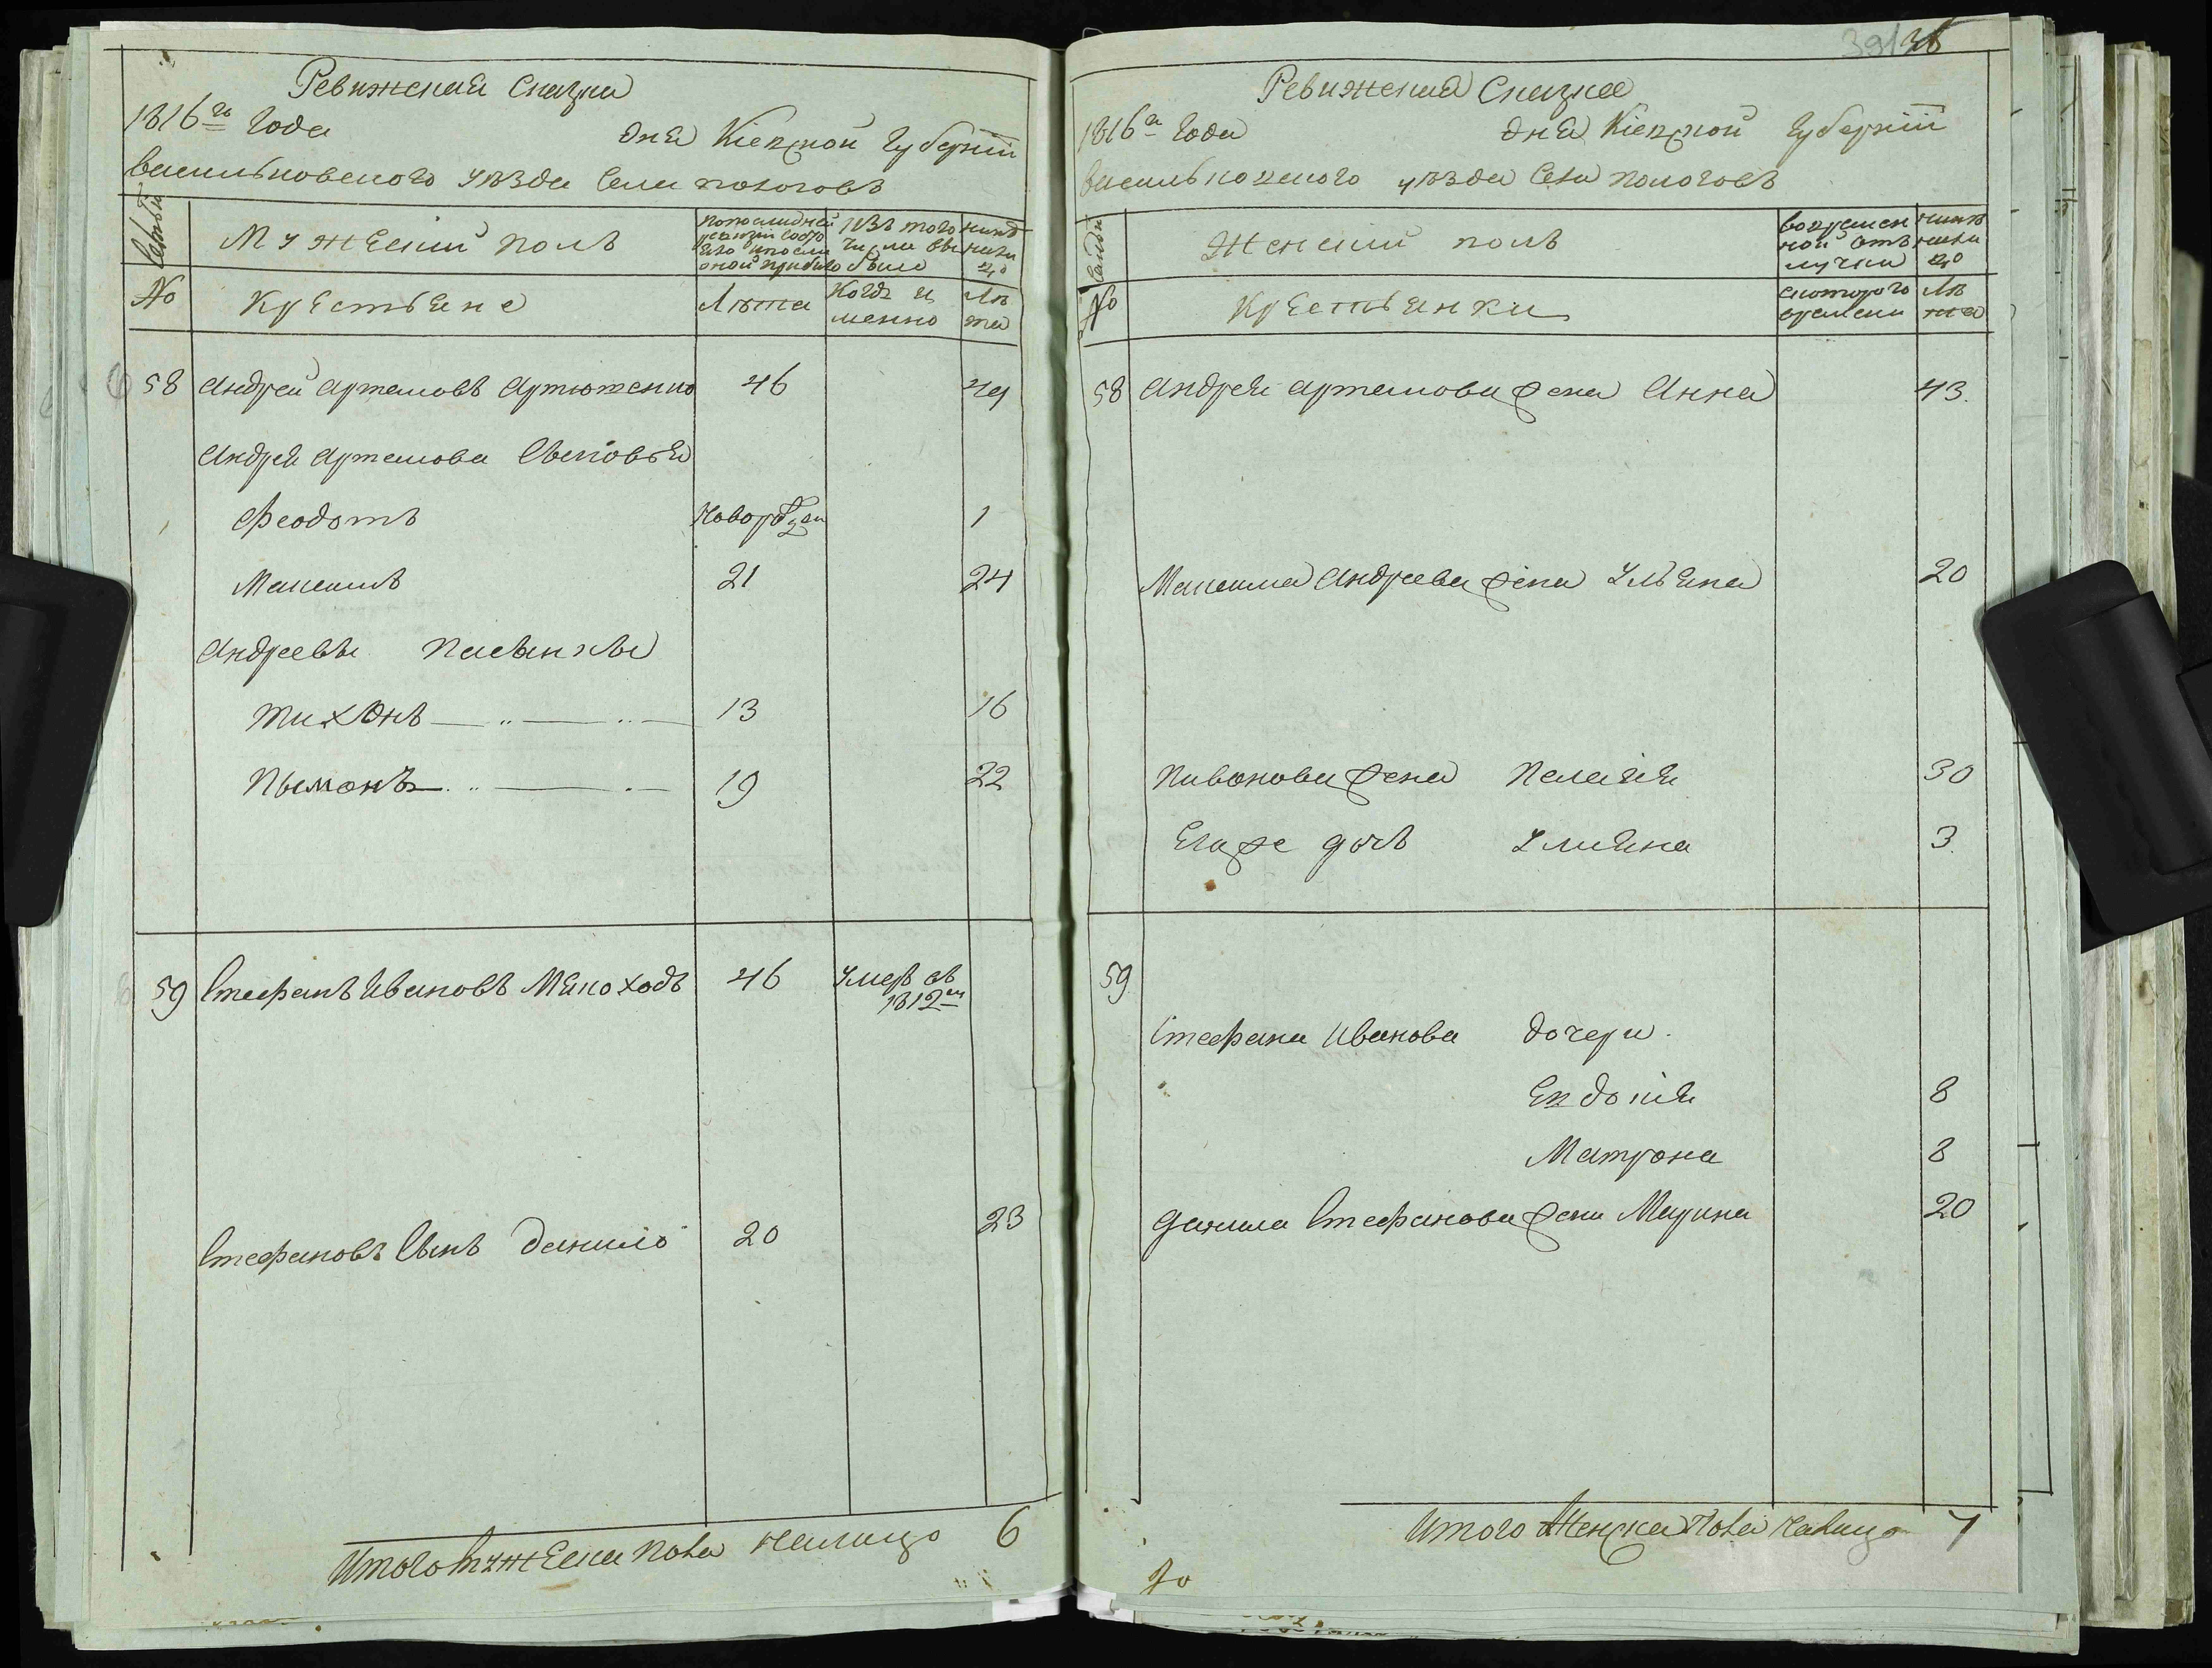 Ревижская Сказка
1816го Года дня Кіевской Губерніи
васильковского уѣзда Села пологовъ
Семьи
Мужеский полъ
По последней ревизіи состояло и после оной прибыло
Изъ того числа выбыло
Нинѣ на лицо
№ Крестьяне
Лѣта
Когда именно
Лѣта
58 Андрей Артемовъ Артюшенко 46 49
Андрея Артемова Сыновья
Феодотъ Новорожден 1
Максимъ 21 24
Андреевы Пасынкы
Тихонъ 13 16
Пымонъ 19 22
59 Стефанъ Ивановъ Мякоходъ 46 Умеръ въ 1812м
Стефановъ Сынъ Данило 20 23
Итого мужеска пола налицо 6
39 36
Ревижская Сказка
1816го Года дня Кіевской Губерніи
васильковского уѣзда Села пологовъ
Семьи
Женский полъ
Во временной отлучки
Нинѣ налицо
№ Крестьянки
С которого времени
Лѣта
58 Андрея Артемова жена Анна 43
Максима Андреева жена Ульяна 20
Пивонова жена Пелагия 30
Егаже дочь Ульяна 3
59
Стефана Иванова дочери
Евдокія 8
Матрона 8
Данила Стефанова жена Марина 20
Итого Женска Пола налицо 7